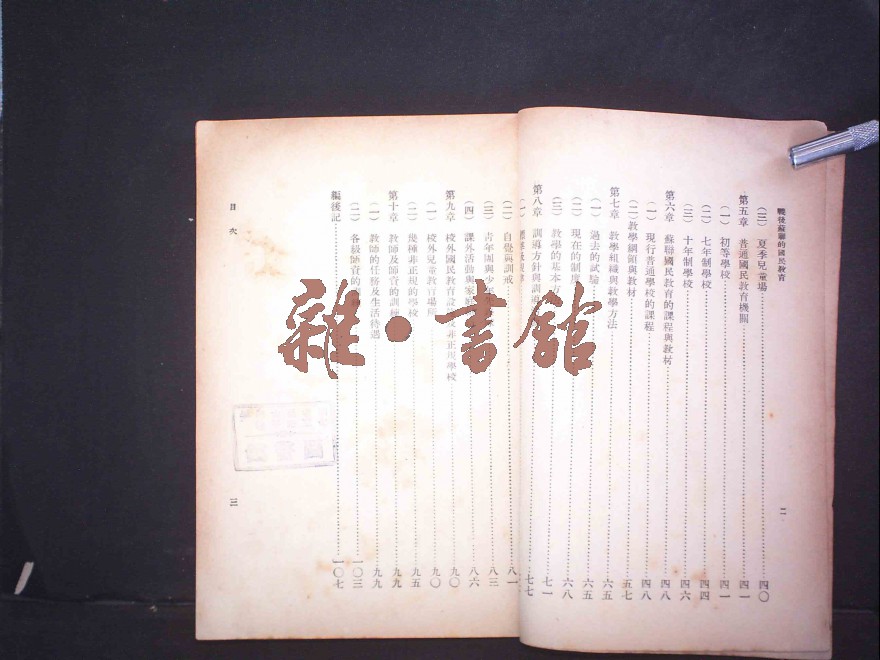 戰後蘇聯的國民教育
二
(三) 夏季兒童場 四〇
第五章 普通國民教育機關 四一
(一) 初等學校 四一
(二) 七年制學校 四四
(三) 十年制學校 四六
第六章 蘇聯國民教育的課程與教材 四八
(一) 現行普通學校的課程 四八
(二) 教學綱領與教材 五七
第七章 教學組織與教學方法 六五
(一) 過去的試驗 六五
(二) 現在的制度 六八
(三) 教學的基本方 七一
第八章 訓導方針與訓導 七七
(一)
(二) 自覺與訓戒 八一
(三) 青年團與少年 八三
(四) 課外活動與家庭 八六
第九章 校外國民教育設 及非正規學校 九〇
(一) 校外兒童教育場所 九〇
(二) 幾種非正規的學校 九五
第十章 教師及師資的訓練 九九
(一) 教師的任務及生活待遇 九九
(二) 各級師資的 一〇三
編後記 一〇七
目次
三
雜·書館